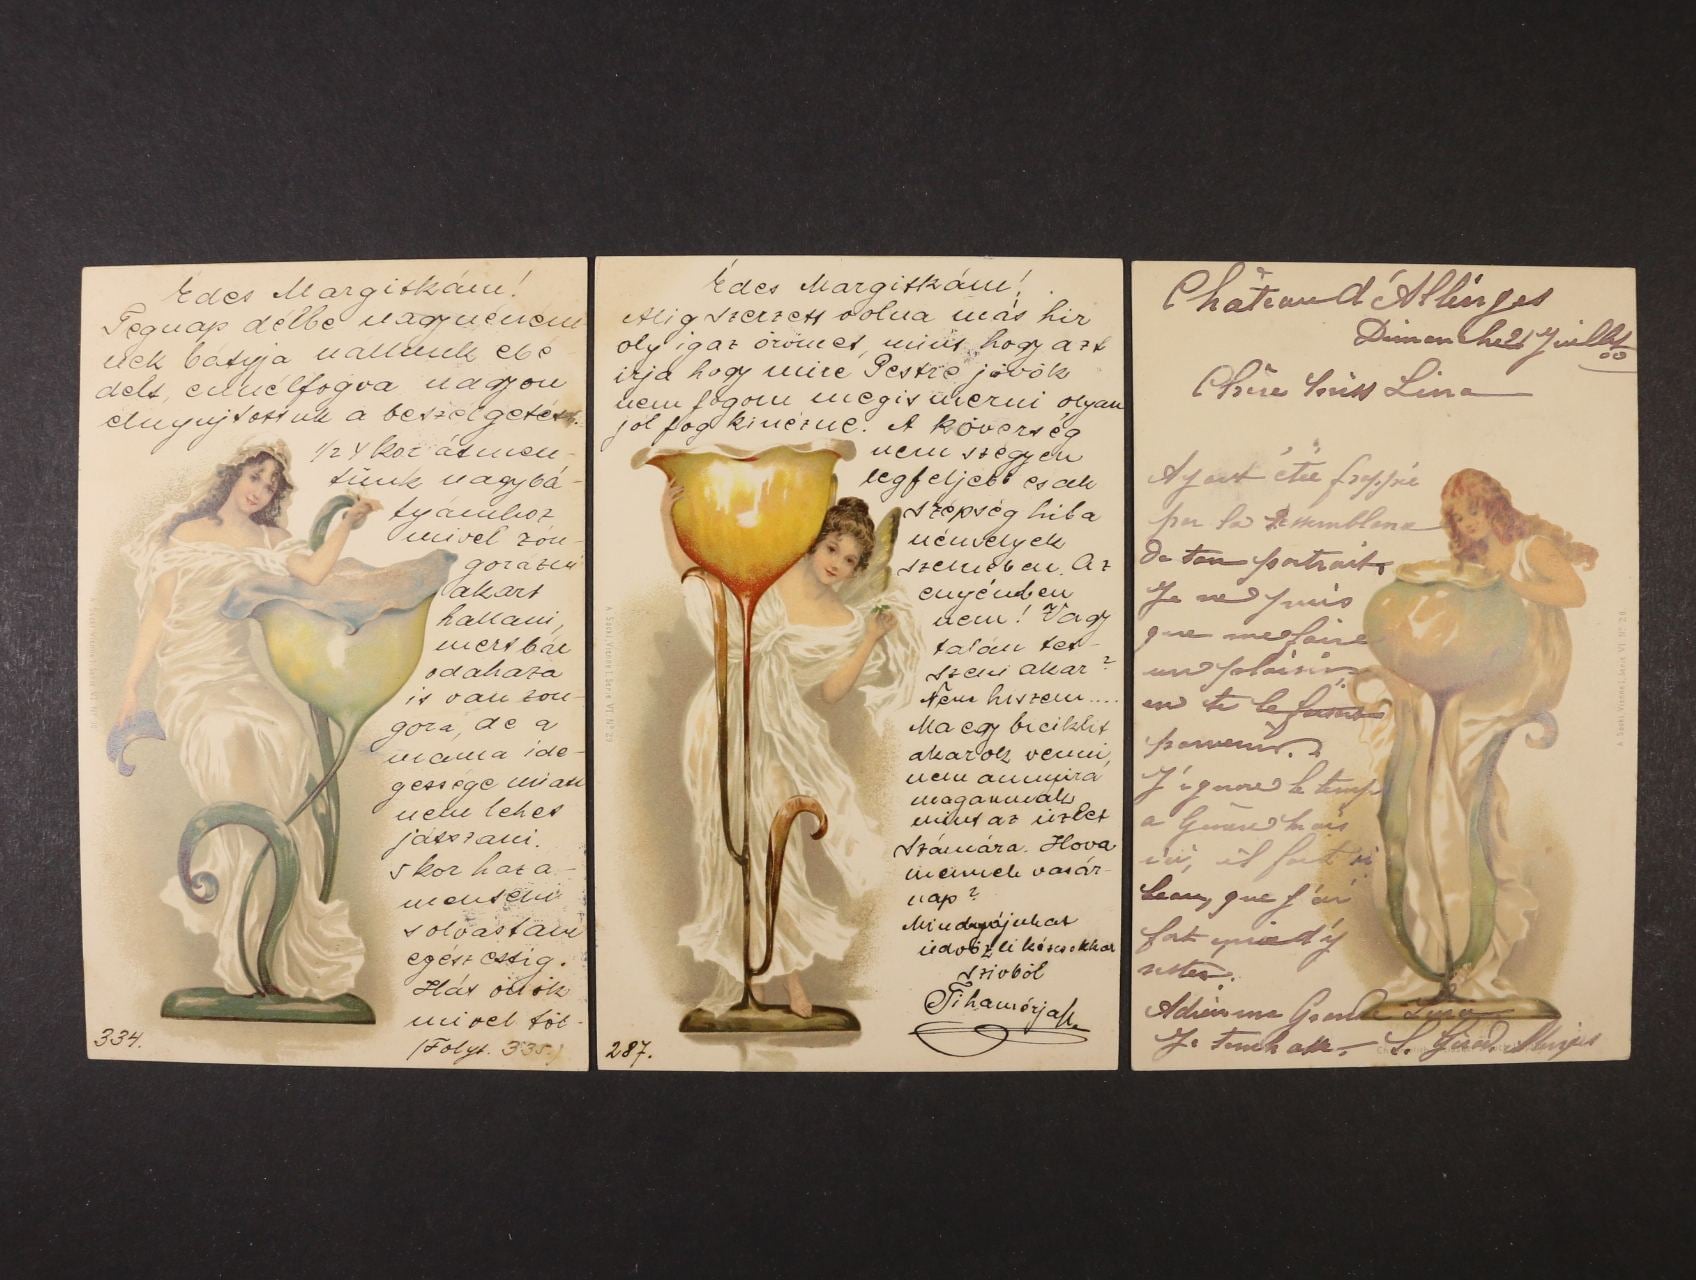 Édes Margitkám!
Tegnap délbe nagynénem-
nek bátyja nállunk ebé
delt, ennélfogva nagyon
elnyujtottuk a beszélgetést.
1/2 4 kor átmen-
tünk nagybá-
tyámhoz
mivel zon-
gorázni
akart
hallani,
mert bár
odahaza
is van zon-
gora, de a
mama ide-
gessége miatt
nem lehet
játszani.
5 kor haza-
mentem
s olvastam
egész estig.
Hát önök
mivel töl-
(Folyt. 335.)
334.
Édes Margitkám!
Alig szerzett volna más hir
oly igaz örömet, mint hogy azt
irja hogy mire Pestre jövök
nem fogom megismerni olyan
jól fog kinézne. A kövérség
nem szégyen
legfeljebb csak
szépség hiba
némelyek
szemében. Az
enyémben
nem! Vagy
talán tet-
szeni akar?
Nem hiszem....
Ma egy biciklit
akarok venni,
nem annyira
magamnak
mint az üzlet
számára. Hova
mennek vasár-
nap?
Mindnyájukat
üdvözli kézcsókkal
szivből
Tihamérjak
287.
A Socki, Vienne I, Serie VI Nº 29
Château d'Allinges
Dimanche 8 Juillet
00
Chère Miss Lina
Ayant été frappé
par la ressemblance
de ton portrait
Je ne puis
que me faire
un plaisir
en te le faisant
parvenir.
J'ignore le temps
a Genève mais
ici, il fait si
beau, que j'ai
fort envie d'y
rester.
A Socki, Vienne I, Serie VI Nº 26